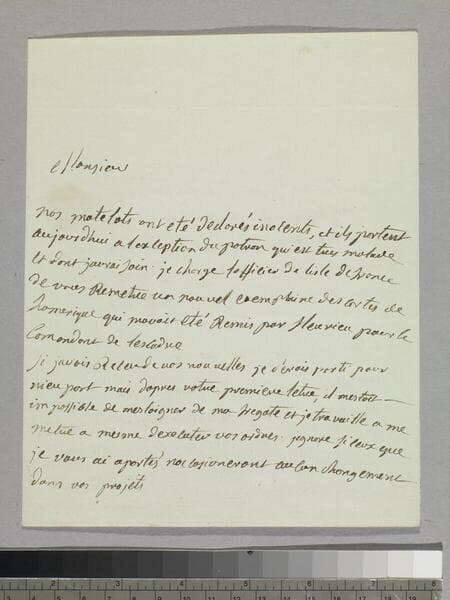 Monsieur
nos matelots ont été declarés inocents, et ils partent
aujourdhui a lexception du patron qui est tres malade
et dont jaurai soin. je charge lofficier de lisle de france
de vous remetre un nouvel exemplaire des cartes de
lamerique qui mavoit été remis par fleurieu pour le
Comandant de lescadre
Si javois recu de vos nouvelles je serois parti pour
nieuport mais dapres votre premiere letre, il mestoit
impossible de mesloigner de ma fregate et je travaille a me
metre a mesme dexecuter vos ordres. jignore si ceux que
je vous ai aportés nocasioneront aucun changement
dans vos projets